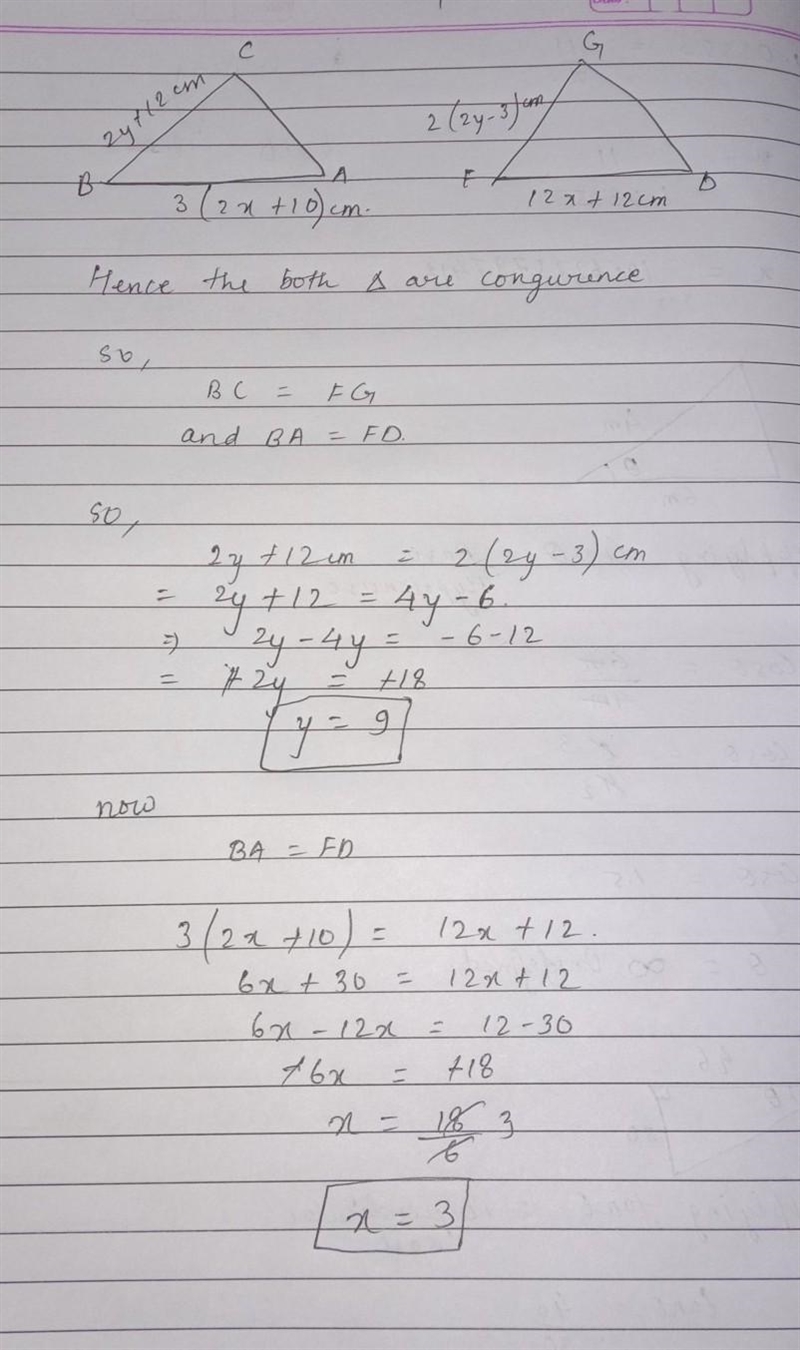 C
G
2y+12 cm
2(2y-3) cm
B
A
F
D
3(2x+10) cm.
12x+12cm
Hence the both Δ are congurence
so,
BC = FG
and BA = FD.
so,
2y+12cm = 2(2y-3) cm
= 2y+12 = 4y-6.
⇒ 2y-4y = -6-12
= +2y = +18
y = 9
now
BA = FD
3(2x+10) = 12x+12.
6x+30 = 12x+12
6x-12x = 12-30
+6x = +18
x = 18/6 3
x = 3